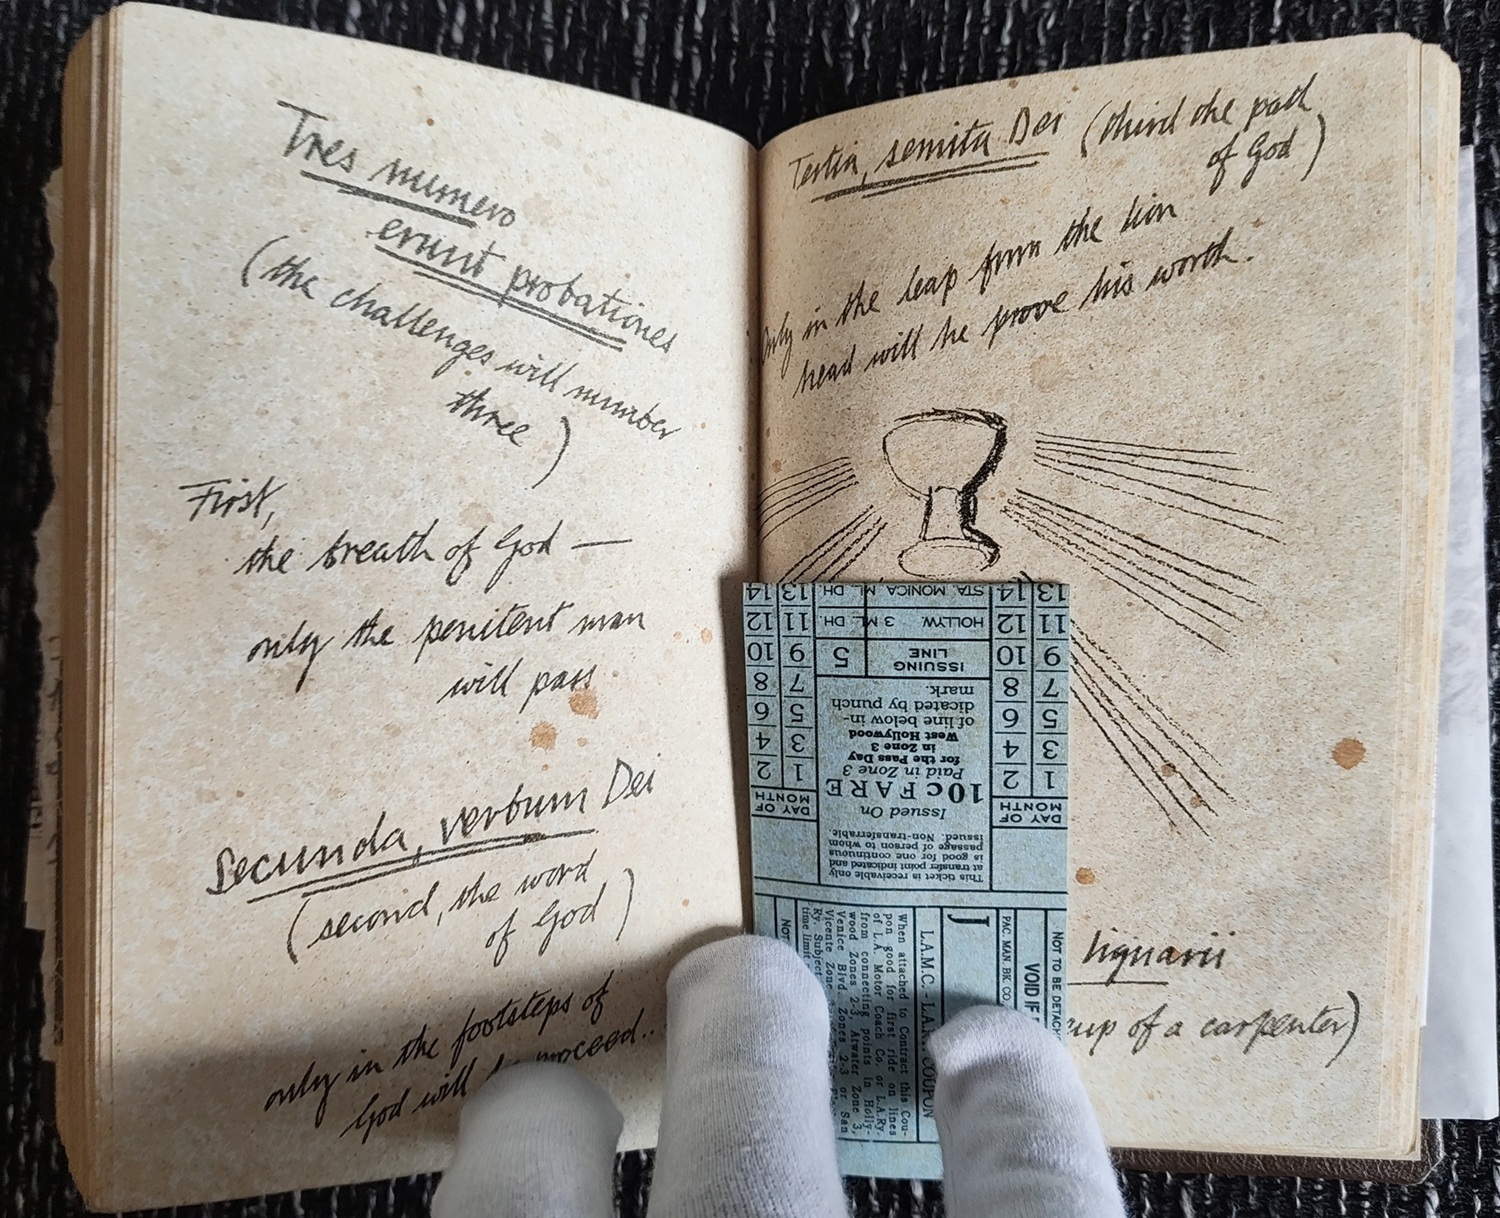 Tres numero
erunt probationes
(the challenges will number
three)
First,
the breath of God —
only the penitent man
will pass
Secunda, verbum Dei
(second, the word
of God)
only in the footsteps of
God will he proceed..
Tertia, semita Dei (third the path
of God)
Only in the leap from the lion
head will he prove his worth.
lignarii
cup of a carpenter)
NOT TO BE DETACH
VOID IF
PAC. MAN. BK. CO.
J
L.A.M.C. - L.A.R. COUPON
When attached to Contract this Cou-
pon good for first ride on lines
of L.A. Motor Coach Co. or L.A.Ry.
from connecting points in Holly-
wood Zones 2-3, Atwater Zone 3,
Venice Blvd., Zones 2-3 or San
Vicente Zone
Ry. Subject
time limit
NOT
This ticket is receivable only
at transfer point indicated and
is good for one continuous
passage of person to whom
issued. Non-transferrable.
Issued On
10c FARE
Paid in Zone 3
for the Pass Day
in Zone 3
West Hollywood
of line below in-
dicated by punch
mark.
ISSUING
LINE
5
HOLLYW. 3 ML. DH.
STA. MONICA M. L. DH.
DAY OF
MONTH
1 2
3 4
5 6
7 8
9 10
11 12
13 14
DAY OF
MONTH
1 2
3 4
5 6
7 8
9 10
11 12
13 14